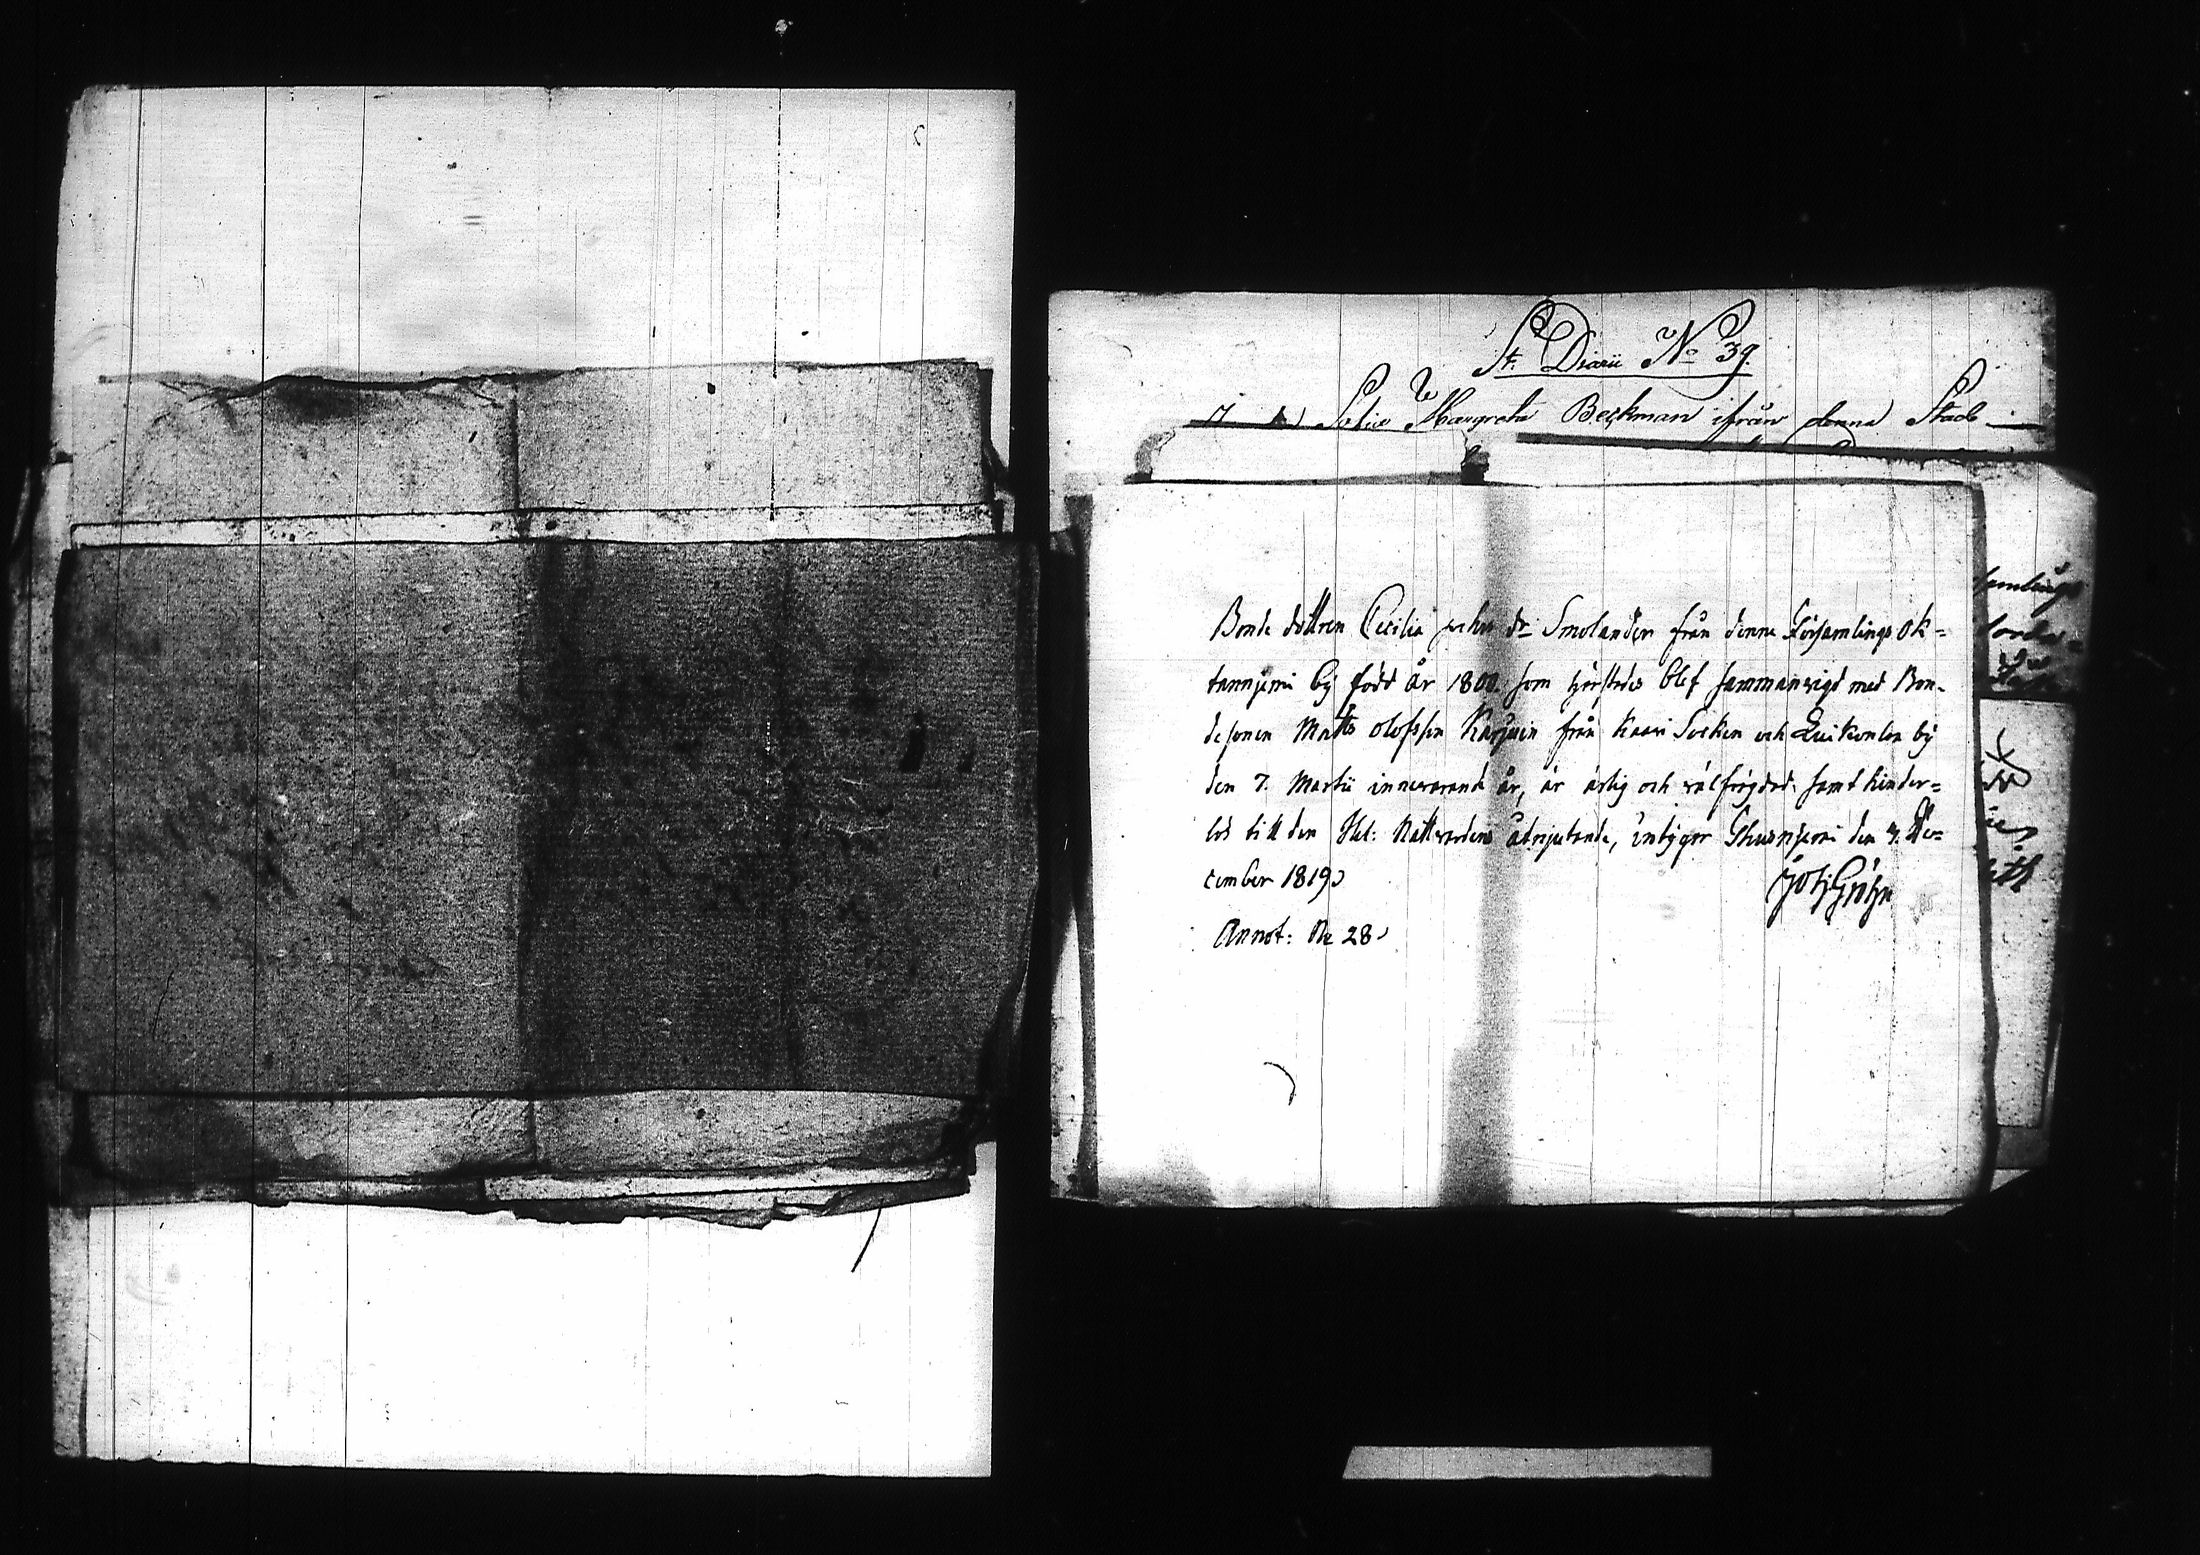 St. Diarii No 39.
Margreta Beckman ifrån denna Stad
Bonde dottren Cecilia Johns dr Smolander från denna Församlings Ok=
tannjemi by född År 1800 som härstädes blef sammanvigd med Bon-
desonen Matts Olofsson från Kaavi Socken och by
den 7. Martii innevarande år, är ärlig och välfrägdad, samt hinder=
lös till den Hel: Nattvardens åtnjutande, intygar den 4. De-
cember 1819
Annot: No 28